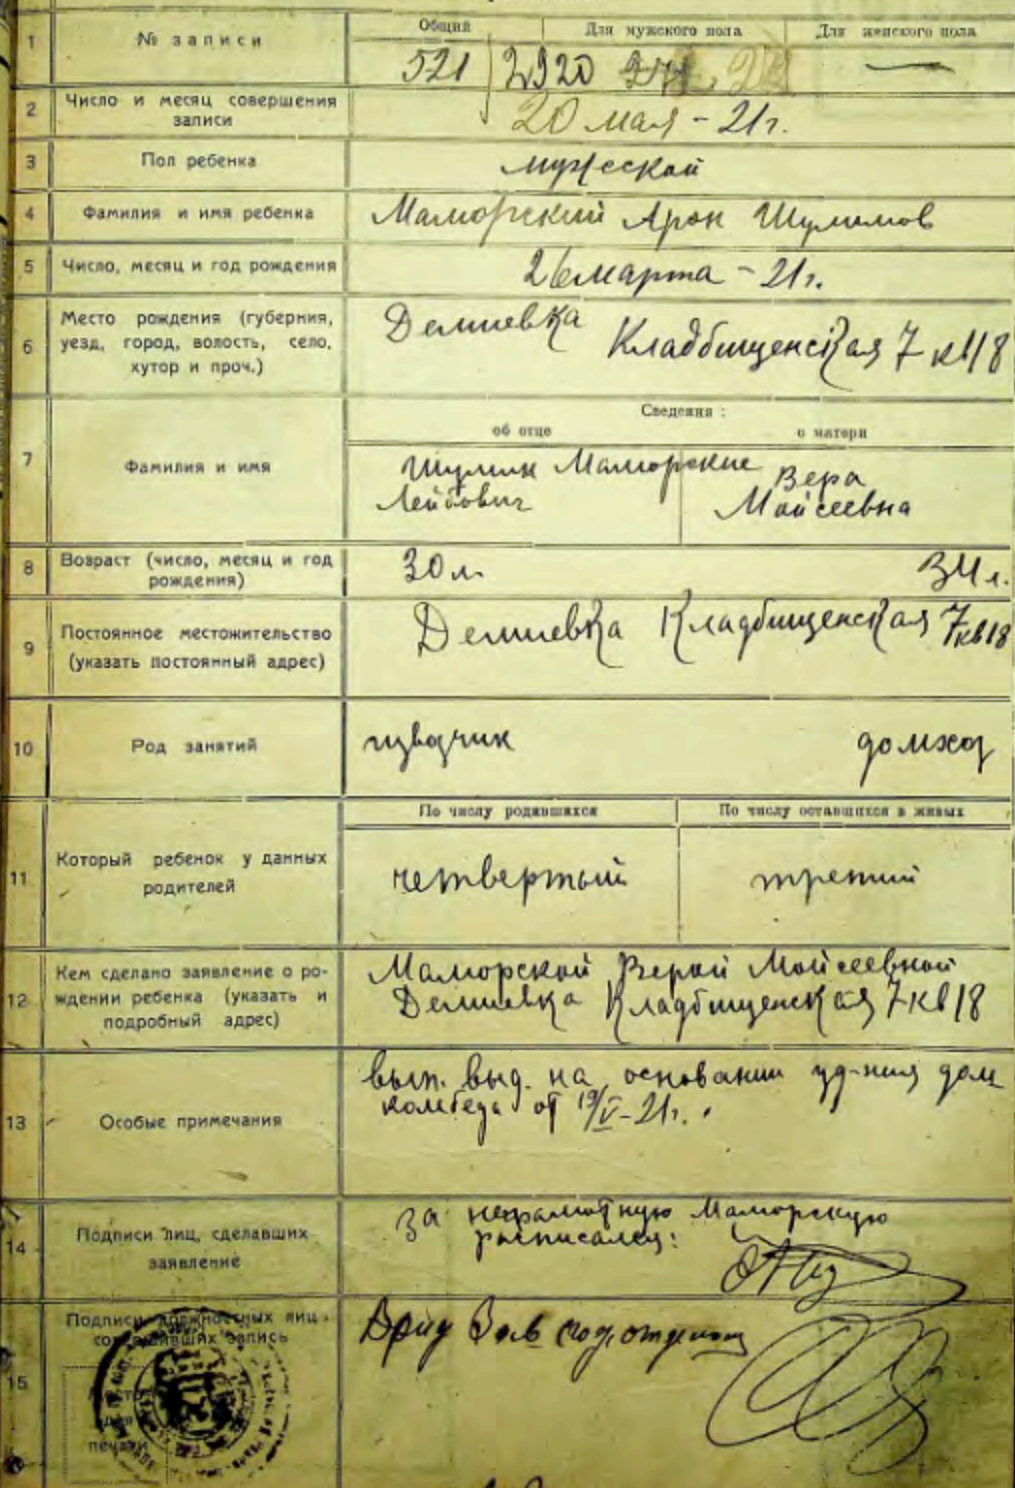 1
№ записи
Общий
Для мужского пола
Для женского пола
521
2920
—
2
Число и месяц совершения
записи
20 мая - 21 г.
3
Пол ребенка
мужеской
4
Фамилия и имя ребенка
Маморский Арон Шулимов
5
Число, месяц и год рождения
26 марта - 21 г.
6
Место рождения (губерния,
уезд, город, волость, село,
хутор и проч.)
Демиевка
Кладбищенская 7 кв 18
7
Фамилия и имя
Сведения :
об отце
о матери
Шулим Маморские
Лейбович
Вера
Мойсеевна
8
Возраст (число, месяц и год
рождения)
30 л.
34 л.
9
Постоянное местожительство
(указать постоянный адрес)
Демиевка Кладбищенская 7 кв 18
10
Род занятий
изводчик
домхоз
11
Который ребенок у данных
родителей
По числу родившихся
По числу оставшихся в живых
четвертый
третий
12
Кем сделано заявление о ро-
ждении ребенка (указать и
подробный адрес)
Маморской Верой Мойсеевной
Демиевка Кладбищенская 7 кв 18
13
Особые примечания
вып. выд. на основании уд-ния дом
комбеда от 19/V-21 г.
14
Подписи лиц, сделавших
заявление
За неграмотную Маморскую
расписался:
15
Подписи должностных лиц,
совершивших запись
Врид Зав подотделом